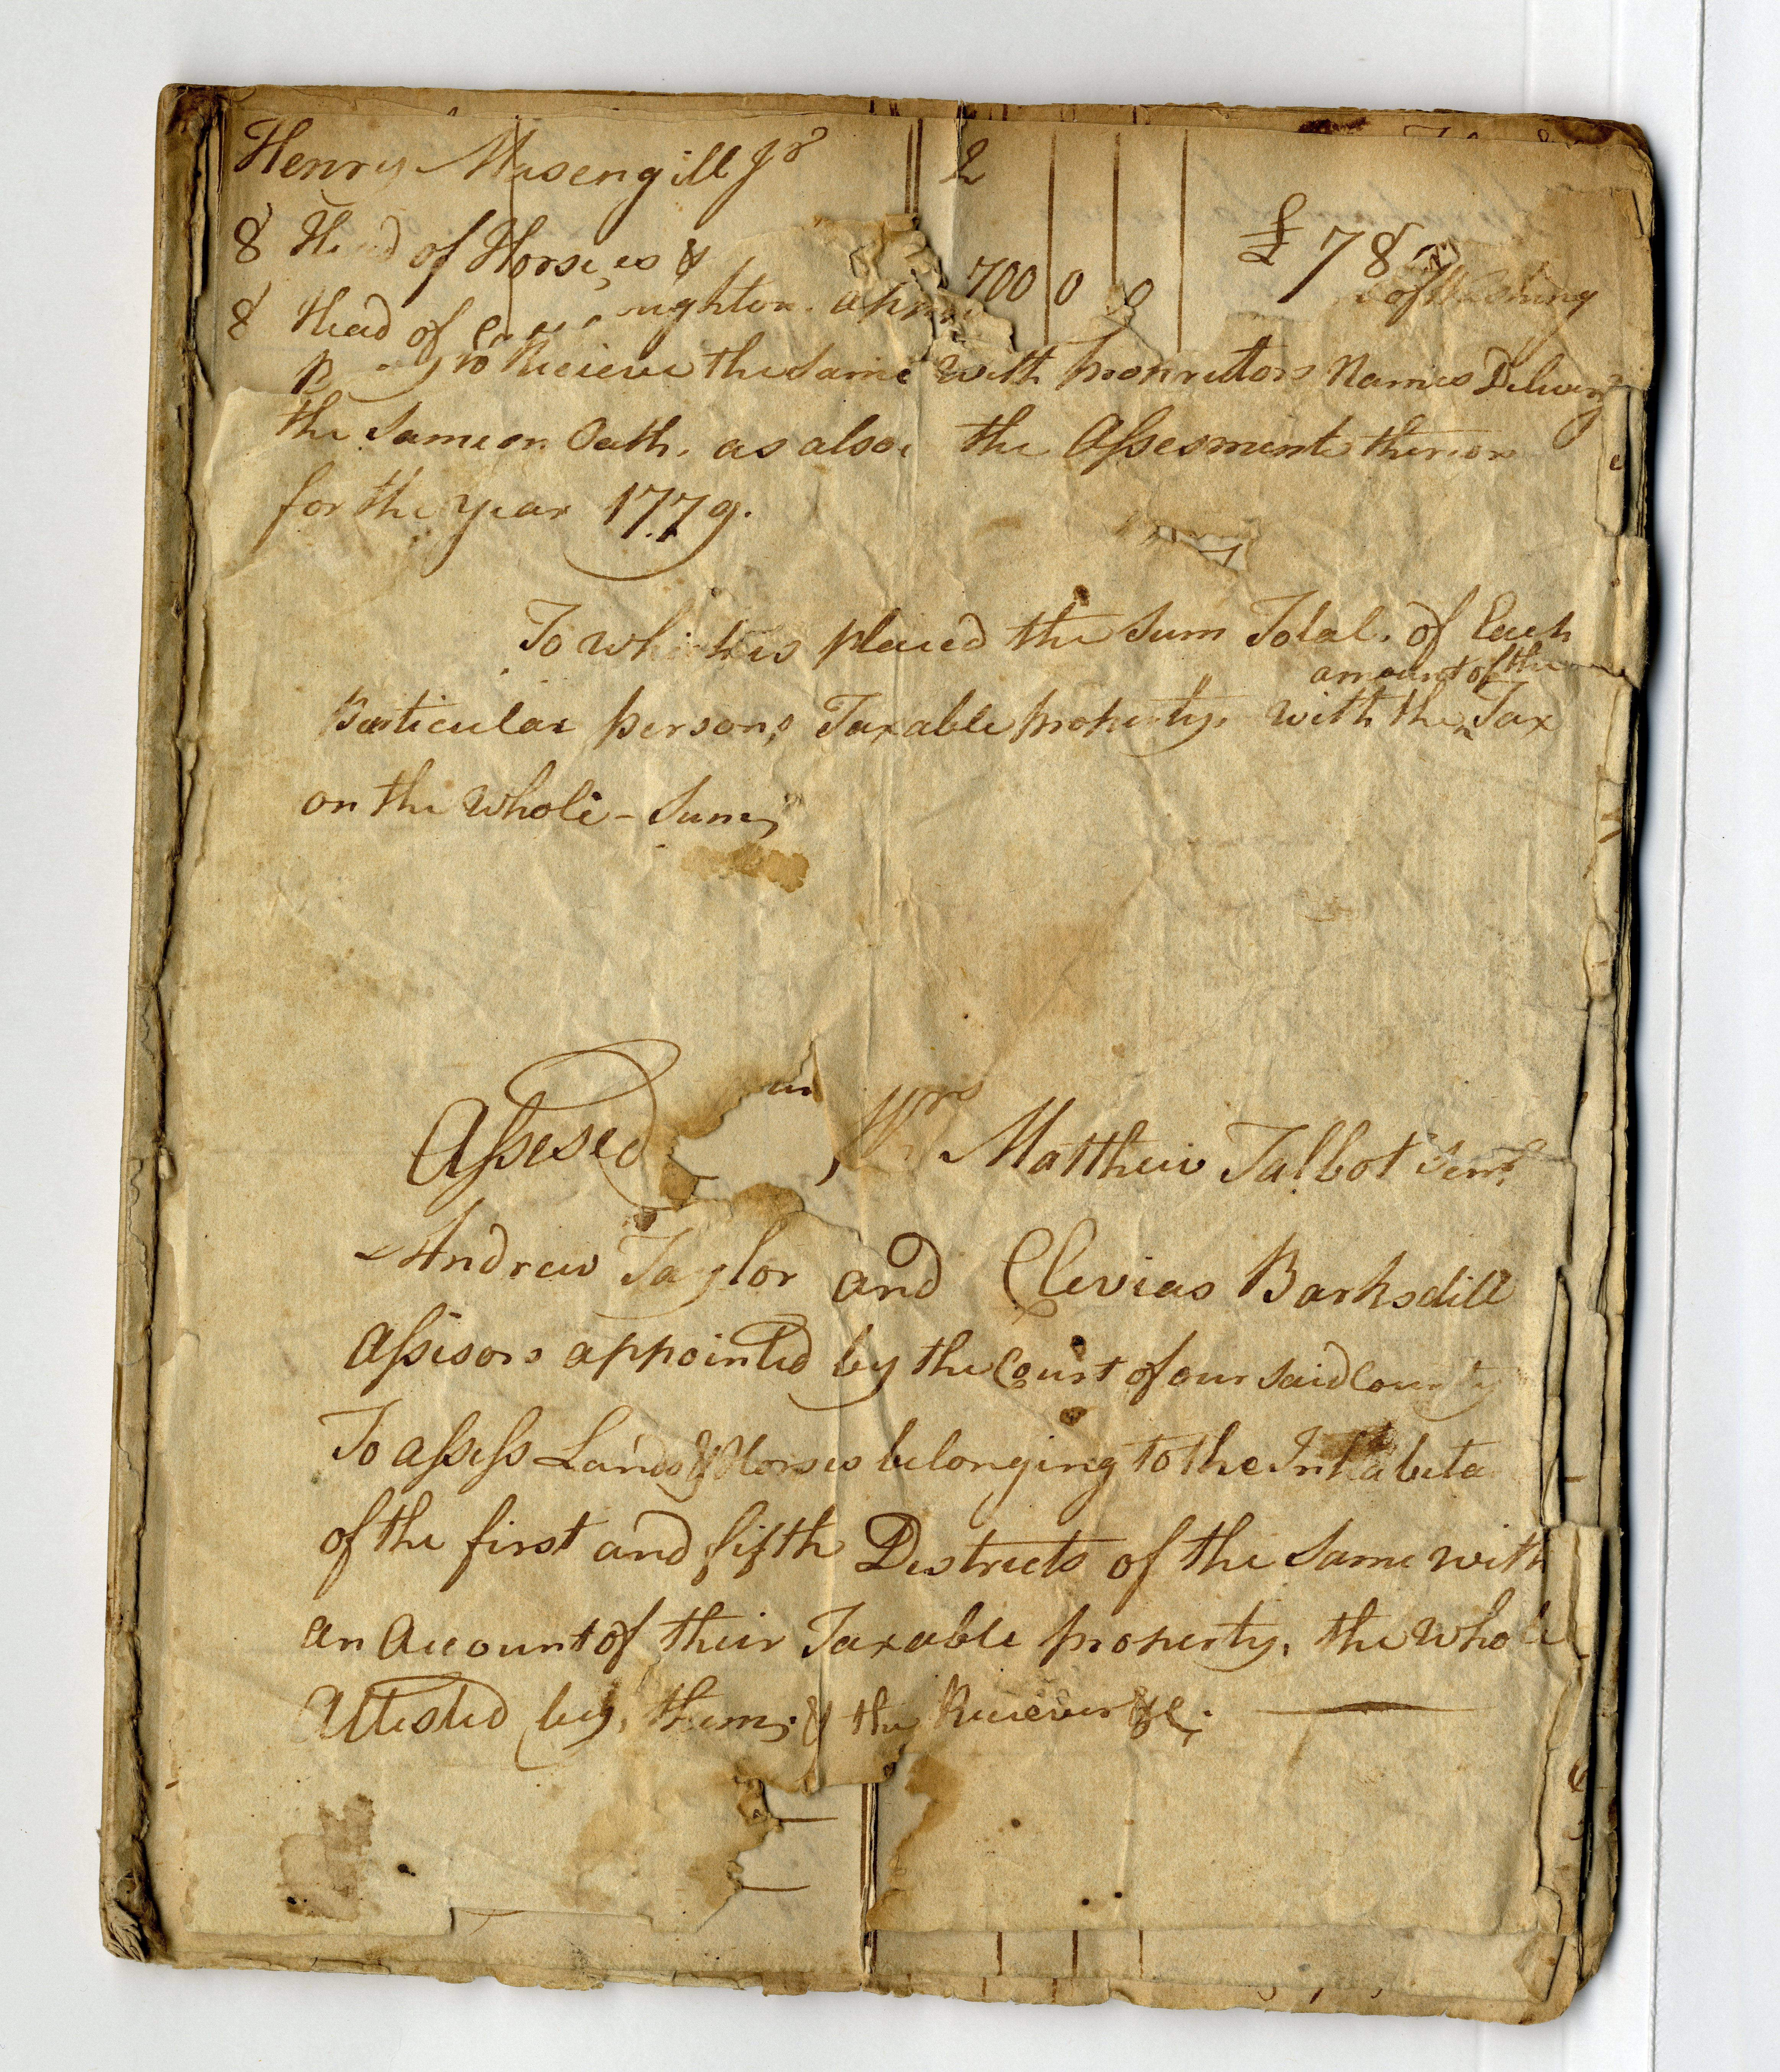 Henry Masengill Jr
8 Head of Horses &
700 0 0
£ 78
8 Head of
ughton. app
of Washing
to Recieve the same with proprietors Names Delivery
the same on Oath. as also the Assesment theron
for the year 1779.
To which is placed the Sum Total. of Each
amount of the
Particular persons Taxable property. with the Tax
on the whole - Sum
Assesed
Mrs Matthew Talbot Senr.
Andrew Taylor and Clevias Barksdill
Assesors appointed by the Court of our said County
To assess Lands & Horses belonging to the Inhabita
of the first and fifth Destrects of the Same with
an Account of their Taxable property. the whole
Attested by them & the Reciever &c.